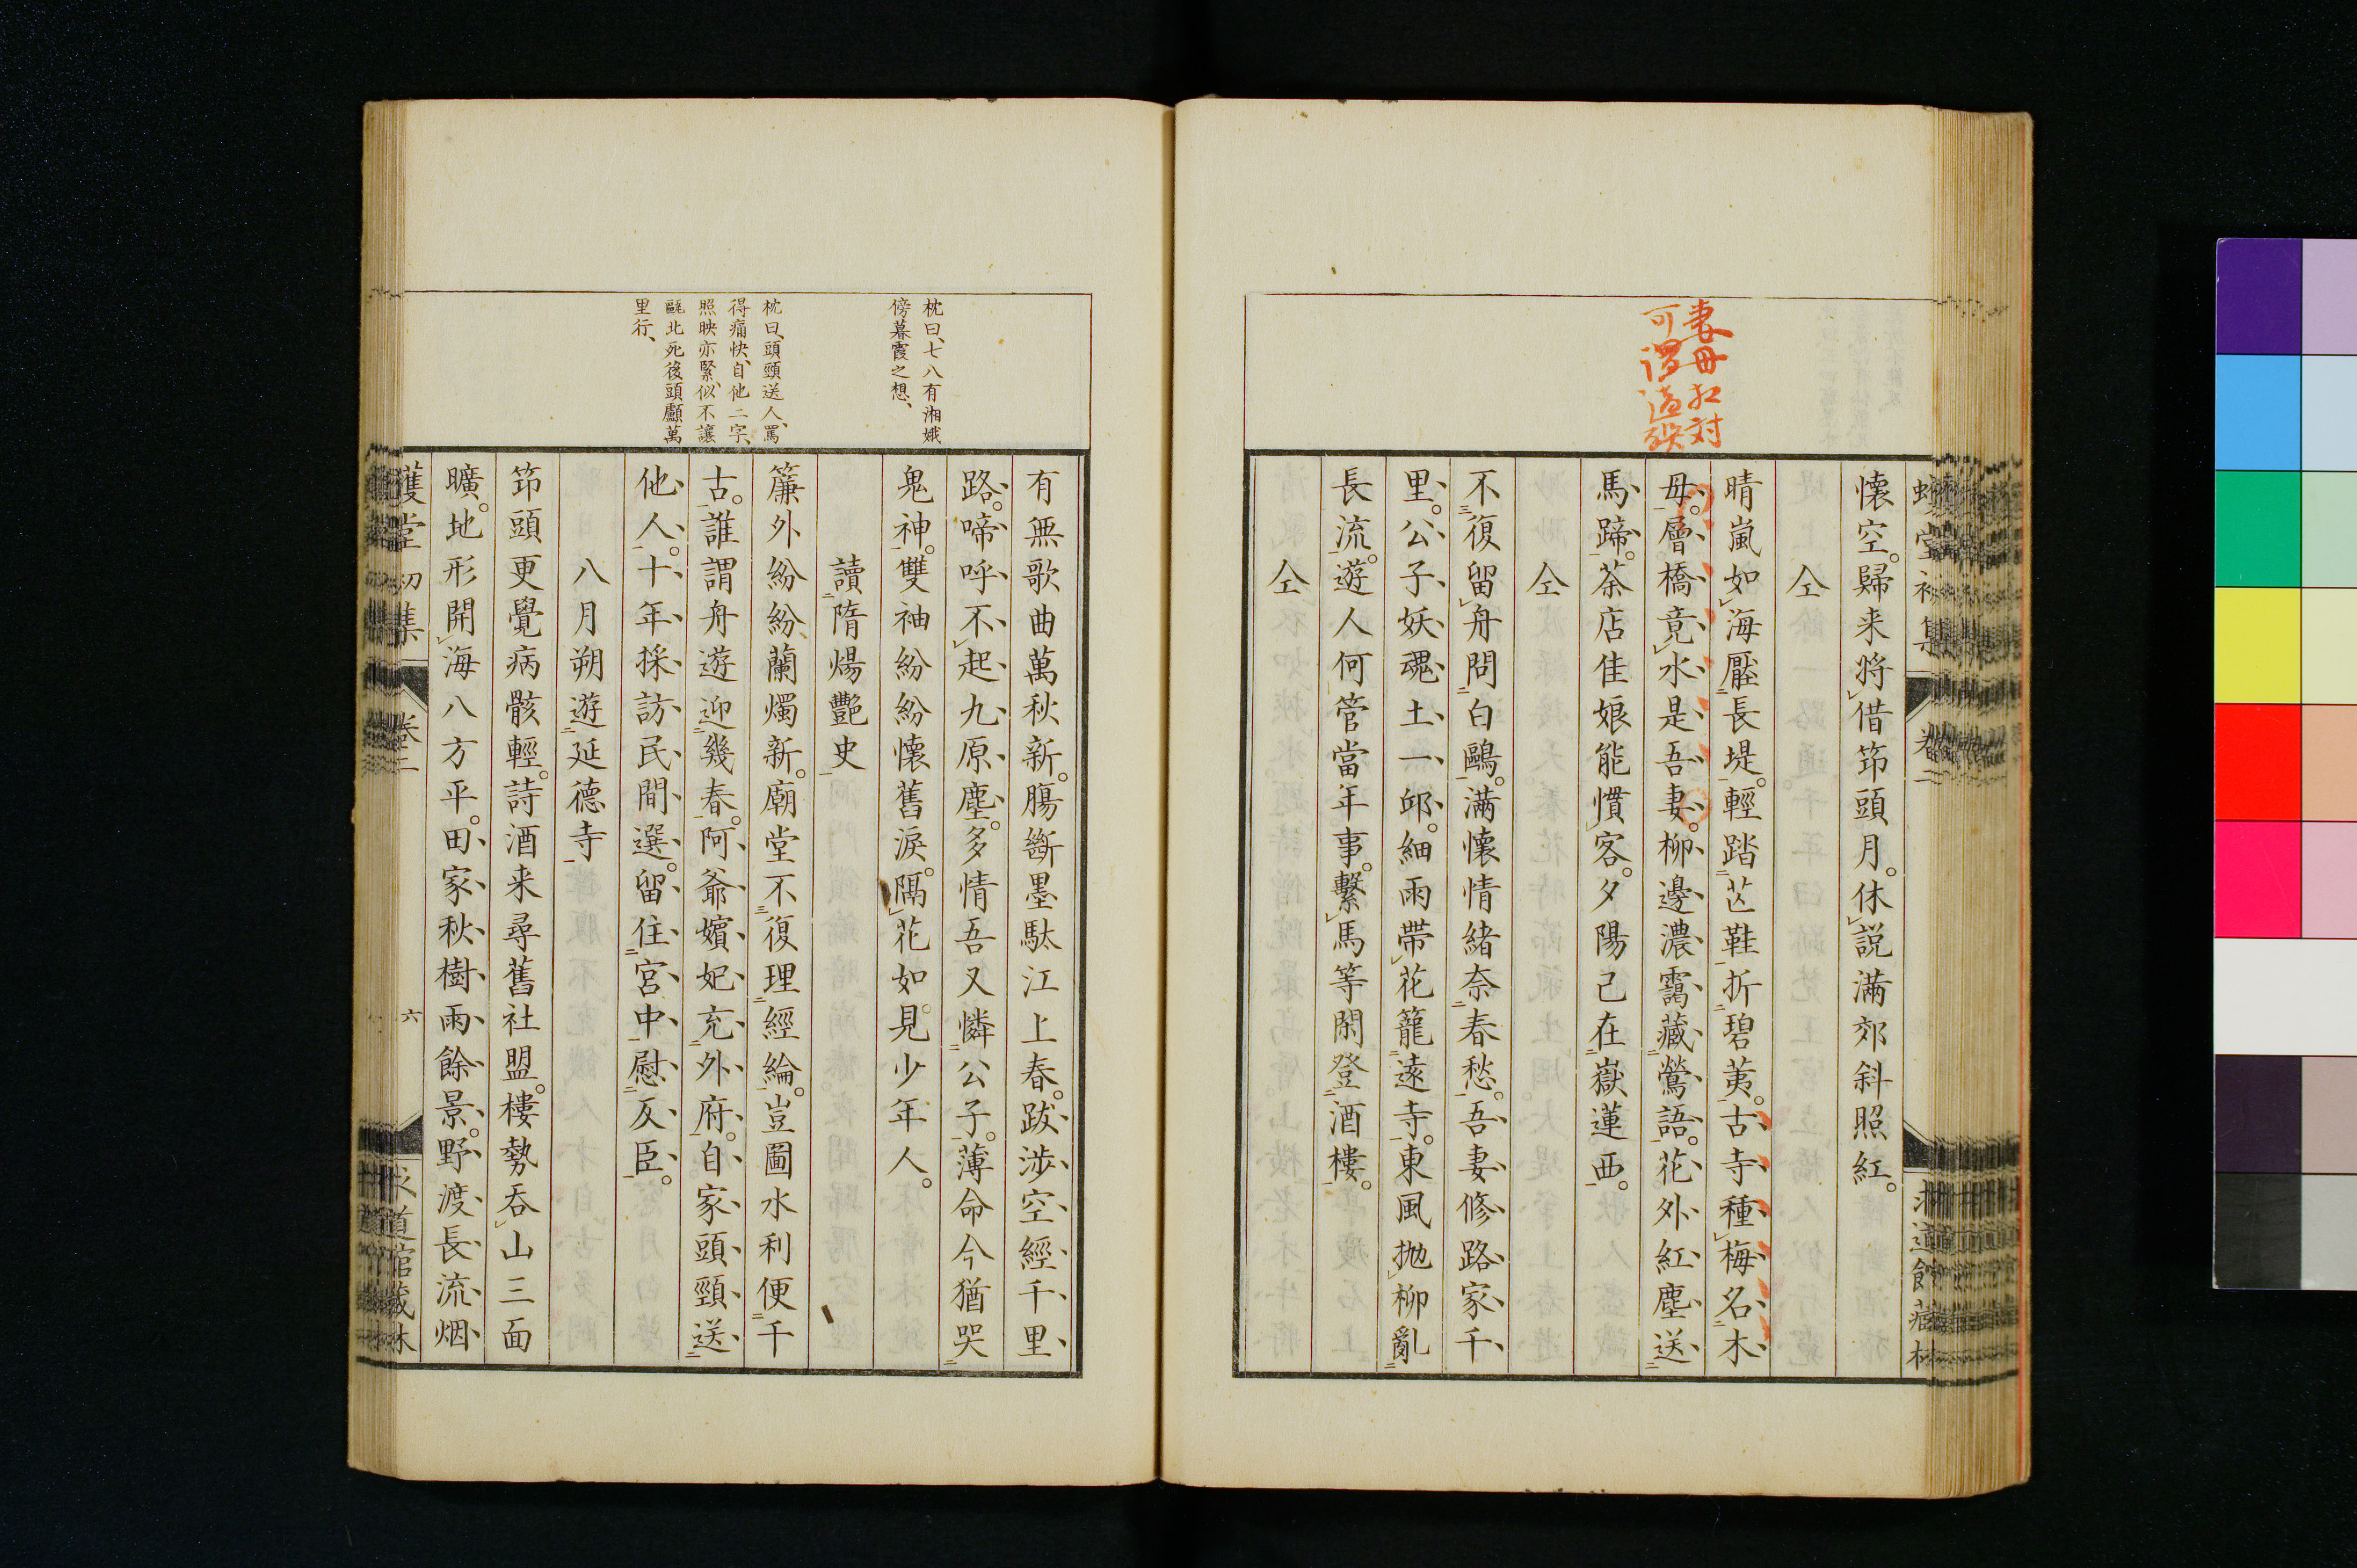 妻母相対
可謂
懐空。歸来將借笻頭月。休説滿郊斜照紅。
仝
晴嵐如海壓長堤。輕踏芒鞋折碧荑。古寺種梅名木
母。層橋竟水是吾妻。柳邊濃靄藏鶯語。花外紅塵送
馬蹄。茶店佳娘能慣客。夕陽己在嶽蓮西。
仝
不復留舟問白鷗。滿懐情緒奈春愁。吾妻修路家千
里。公子妖魂土一邱。細雨帶花籠遠寺。東風拋柳亂
長流。遊人何管當年事。繫馬等閑登酒樓。
仝
枕曰、七八有湘娥
傍暮霞之想、
枕曰、頭頸送人、罵
得痛快、自他二字、
照映亦緊、似不讓
北死後頭顱萬
里行、
有無歌曲萬秋新。膓斷墨駄江上春。跋渉空經千里
路。啼呼不起九原塵。多情吾又憐公子。薄命今猶哭
鬼神。雙袖紛紛懐舊淚。隔花如見少年人。
讀隋煬艷史
簾外紛紛蘭燭新。廟堂不復理經綸。豈圖水利便千
古。誰謂舟遊迎幾春。阿爺嬪妃充外府。自家頭頸送
他人。十年採訪民間選。留住宮中慰仄臣。
八月朔遊延德寺
笻頭更覺病骸輕。詩酒来尋舊社盟。樓勢吞山三面
曠。地形開海八方平。田家秋樹雨餘景。野渡長流烟
堂初集 卷二 六 道館藏